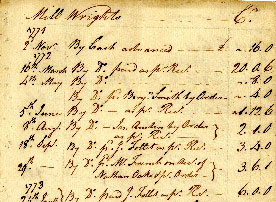 Mill Wrights Cr.
1771
2 Novr By Cash advanced £ 16.0
1772
16th March By Do paid as pr Rect 20.0.6
4th May By Do
By Do for Benjn Smith by Order 4.0
5th June By Do as pr Rect 12.6
8th Augt By Do Jno by Order
By Do pr Rect 2.1.0
18 Sept. By Do pr J. Follet as pr Rect 3.4.0
29th By Do pr M. French on Acct of
Nathan Oakes pr Order 3.6.
1773
By Do paid J. Follet as pr Rect 6.0.0